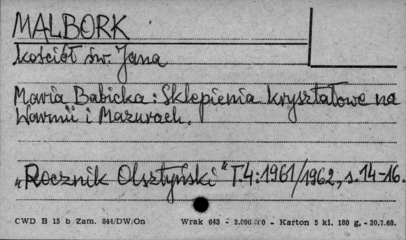 MALBORK
kościół św. Jana
Maria Babicka: Sklepienia kryształowe na
Warmii i Mazurach.
„Rocznik Olsztyński" T.4:1961/1962, s.14-16.
CWD B 15 b Zam. 844/DW/On Wrak 643 - 2.090.000 - Karton 5 kl. 180 g, - 30.7.68.